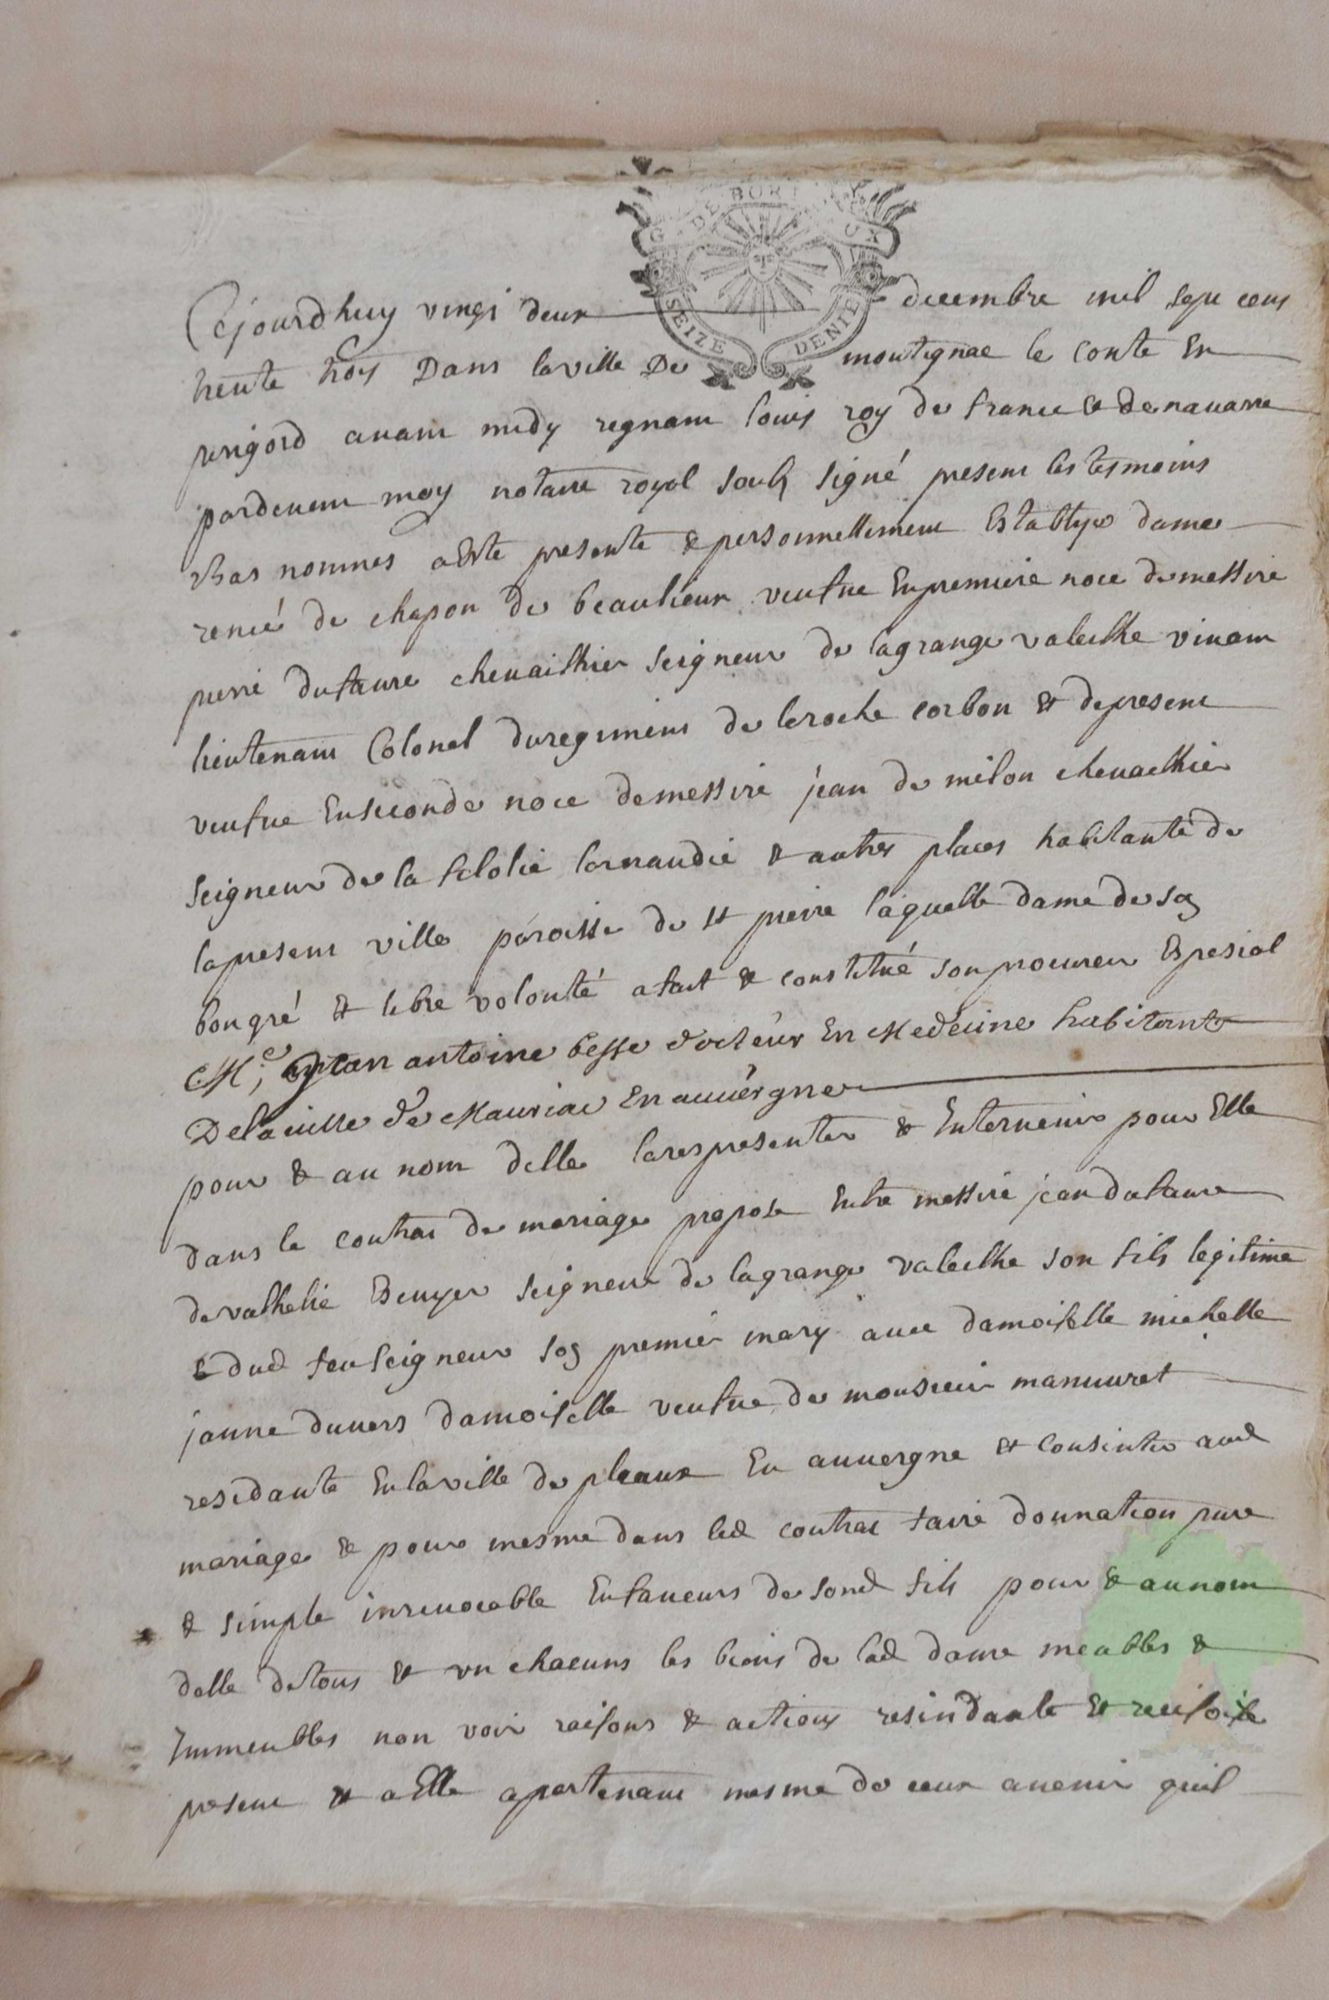 G. DE BORDEAUX
SEIZE DENIE
Cejourdhuy vingt deux decembre mil sept cens
trente trois Dans la ville De montignac le conte En
perigord avant midy regnant louis roy de france & de navarre
pardevant moy notaire royal soubs signé present les tesmoins
bas nommes a este presente & personnellement Establye dame
renée de chapon de beaulieux veufve En premiere noce de messire
pierre dufaure chevailhier seigneur de lagrange valeilhe vivant
lieutenant Colonel du regiment de laroche corbon et de present
veufve En seconde noce de messire jean de milon chevaelhier
seigneur de la filolie lornaudie & autres places habitante de
la present ville paroisse de st pierre laquelle dame de son
bon gré et libre volonté a fait & constitué son procureur Espesial
Me, jean antoine besse docteur En Medecine habitant
De la ville de Mauriac En auvergne
pour & au nom delle la respresenter & Intervenir pour Elle
dans le contrat de mariage propose Entre messire jean dufaure
de valhelie Ecuyer seigneur de lagrange valeilhe son fils legitime
& dud feu seigneur son premier mary avec damoiselle michelle
janne duvers damoiselle veufve de monsieur manuuret
residante En la ville de pleaux En auvergne et consinter aud
mariage & pour mesme dans led contrat faire donnation pure
& simple inrevocable En faveurs de sond fils pour & au nom
delle de tous & un chacuns les biens de lad dame meubles &
Immeubles non voir raisons & actions resindante et
present et a Elle apartenant mesme de ceux avenir quil